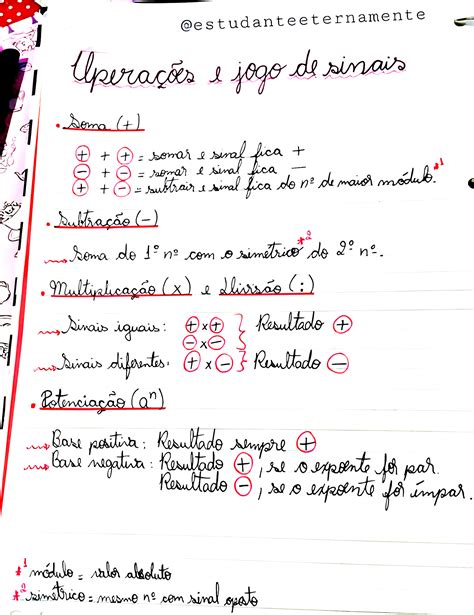 @estudanteeternamente
Operações e jogo de sinais
• Soma (+)
+ + + = somar e sinal fica +
- + - = somar e sinal fica -
+ + - = subtrair e sinal fica do nº de maior módulo.*1
• Subtração (-)
Soma do 1º nº com o simétrico*2 do 2º nº.
• Multiplicação (x) e Divisão (:)
Sinais iguais: + x + } Resultado +
- x -
Sinais diferentes: + x - } Resultado -
• Potenciação (aⁿ)
Base positiva: Resultado sempre +
Base negativa: Resultado +, se o expoente for par.
Resultado -, se o expoente for ímpar.
*1 módulo = valor absoluto
*2 simétrico = mesmo nº com sinal oposto